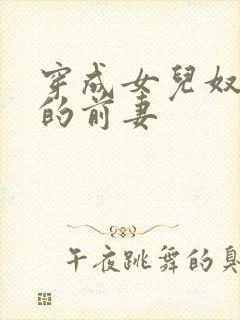 穿成女兒奴
的前妻
午夜跳舞的